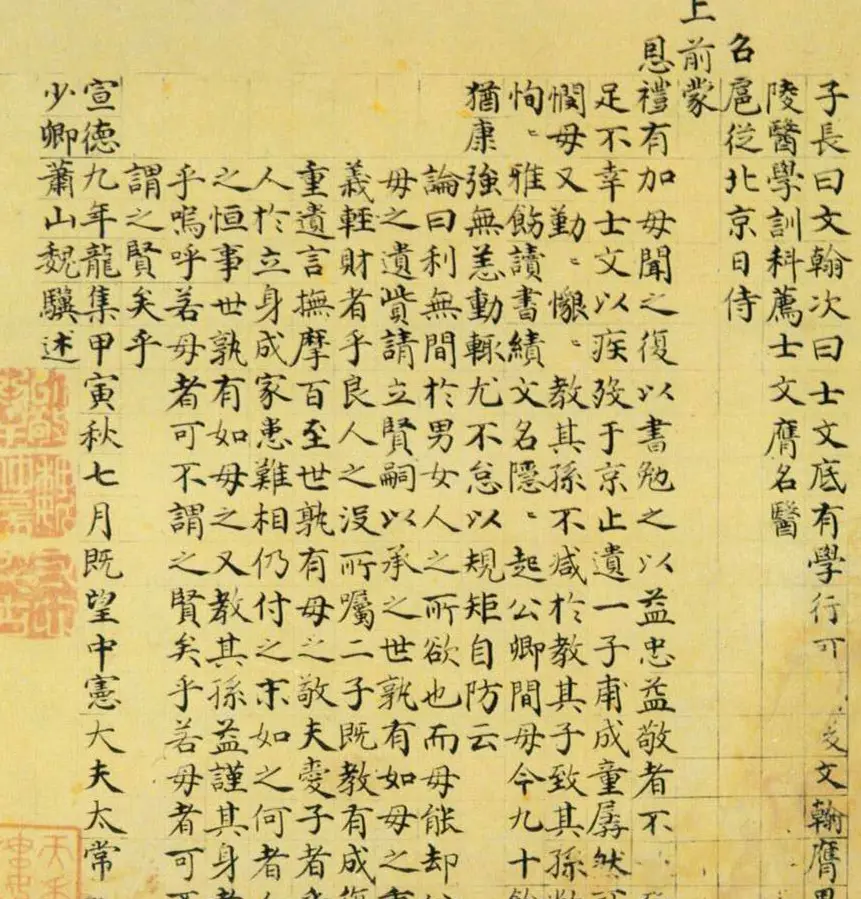 子長曰文翰次曰士文底有學行可 文翰膺
陵醫學訓科薦士文膺名醫
名扈從北京日侍
上前蒙
恩禮有加毋聞之復以書勉之以益忠益敬者不
足不幸士文以疾歿于京止遺一子甫成童孱然
憫毋又勤〻懇〻教其孫不减於教其子致其孫
恂〻雅飭讀書績文名隱〻起公卿間毋今九十
猶康強無恙動輒尤不怠以規矩自防云
論曰利無間於男女人之所欲也而毋能却
毋之遺貲請立賢嗣以承之世孰有如毋之
義輕財者乎良人之沒所囑二子既教有成
重遺言撫摩百至世孰有毋之敬夫愛子者
人於立身成家患難相仍付之末如之何者
之恒事世孰有如毋之又教其孫益謹其身
乎嗚呼若毋者可不謂之賢矣乎若毋者可
謂之賢矣乎
宣德九年龍集甲寅秋七月既望中憲大夫太常
少卿蕭山魏驥述